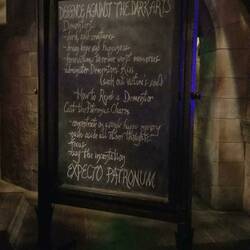 DEFENCE AGAINST THE DARK ARTS
Dementors
- dark, evil creatures
- drain hope and happiness
- force victims to relive worst memories
- administer Dementors Kiss
(suck out victim's soul)
How to Repel a Dementor
Cast the Patronus Charm
- concentrate on a single happy memory
- push aside all other thoughts
- focus
- say the incantation
EXPECTO PATRONUM